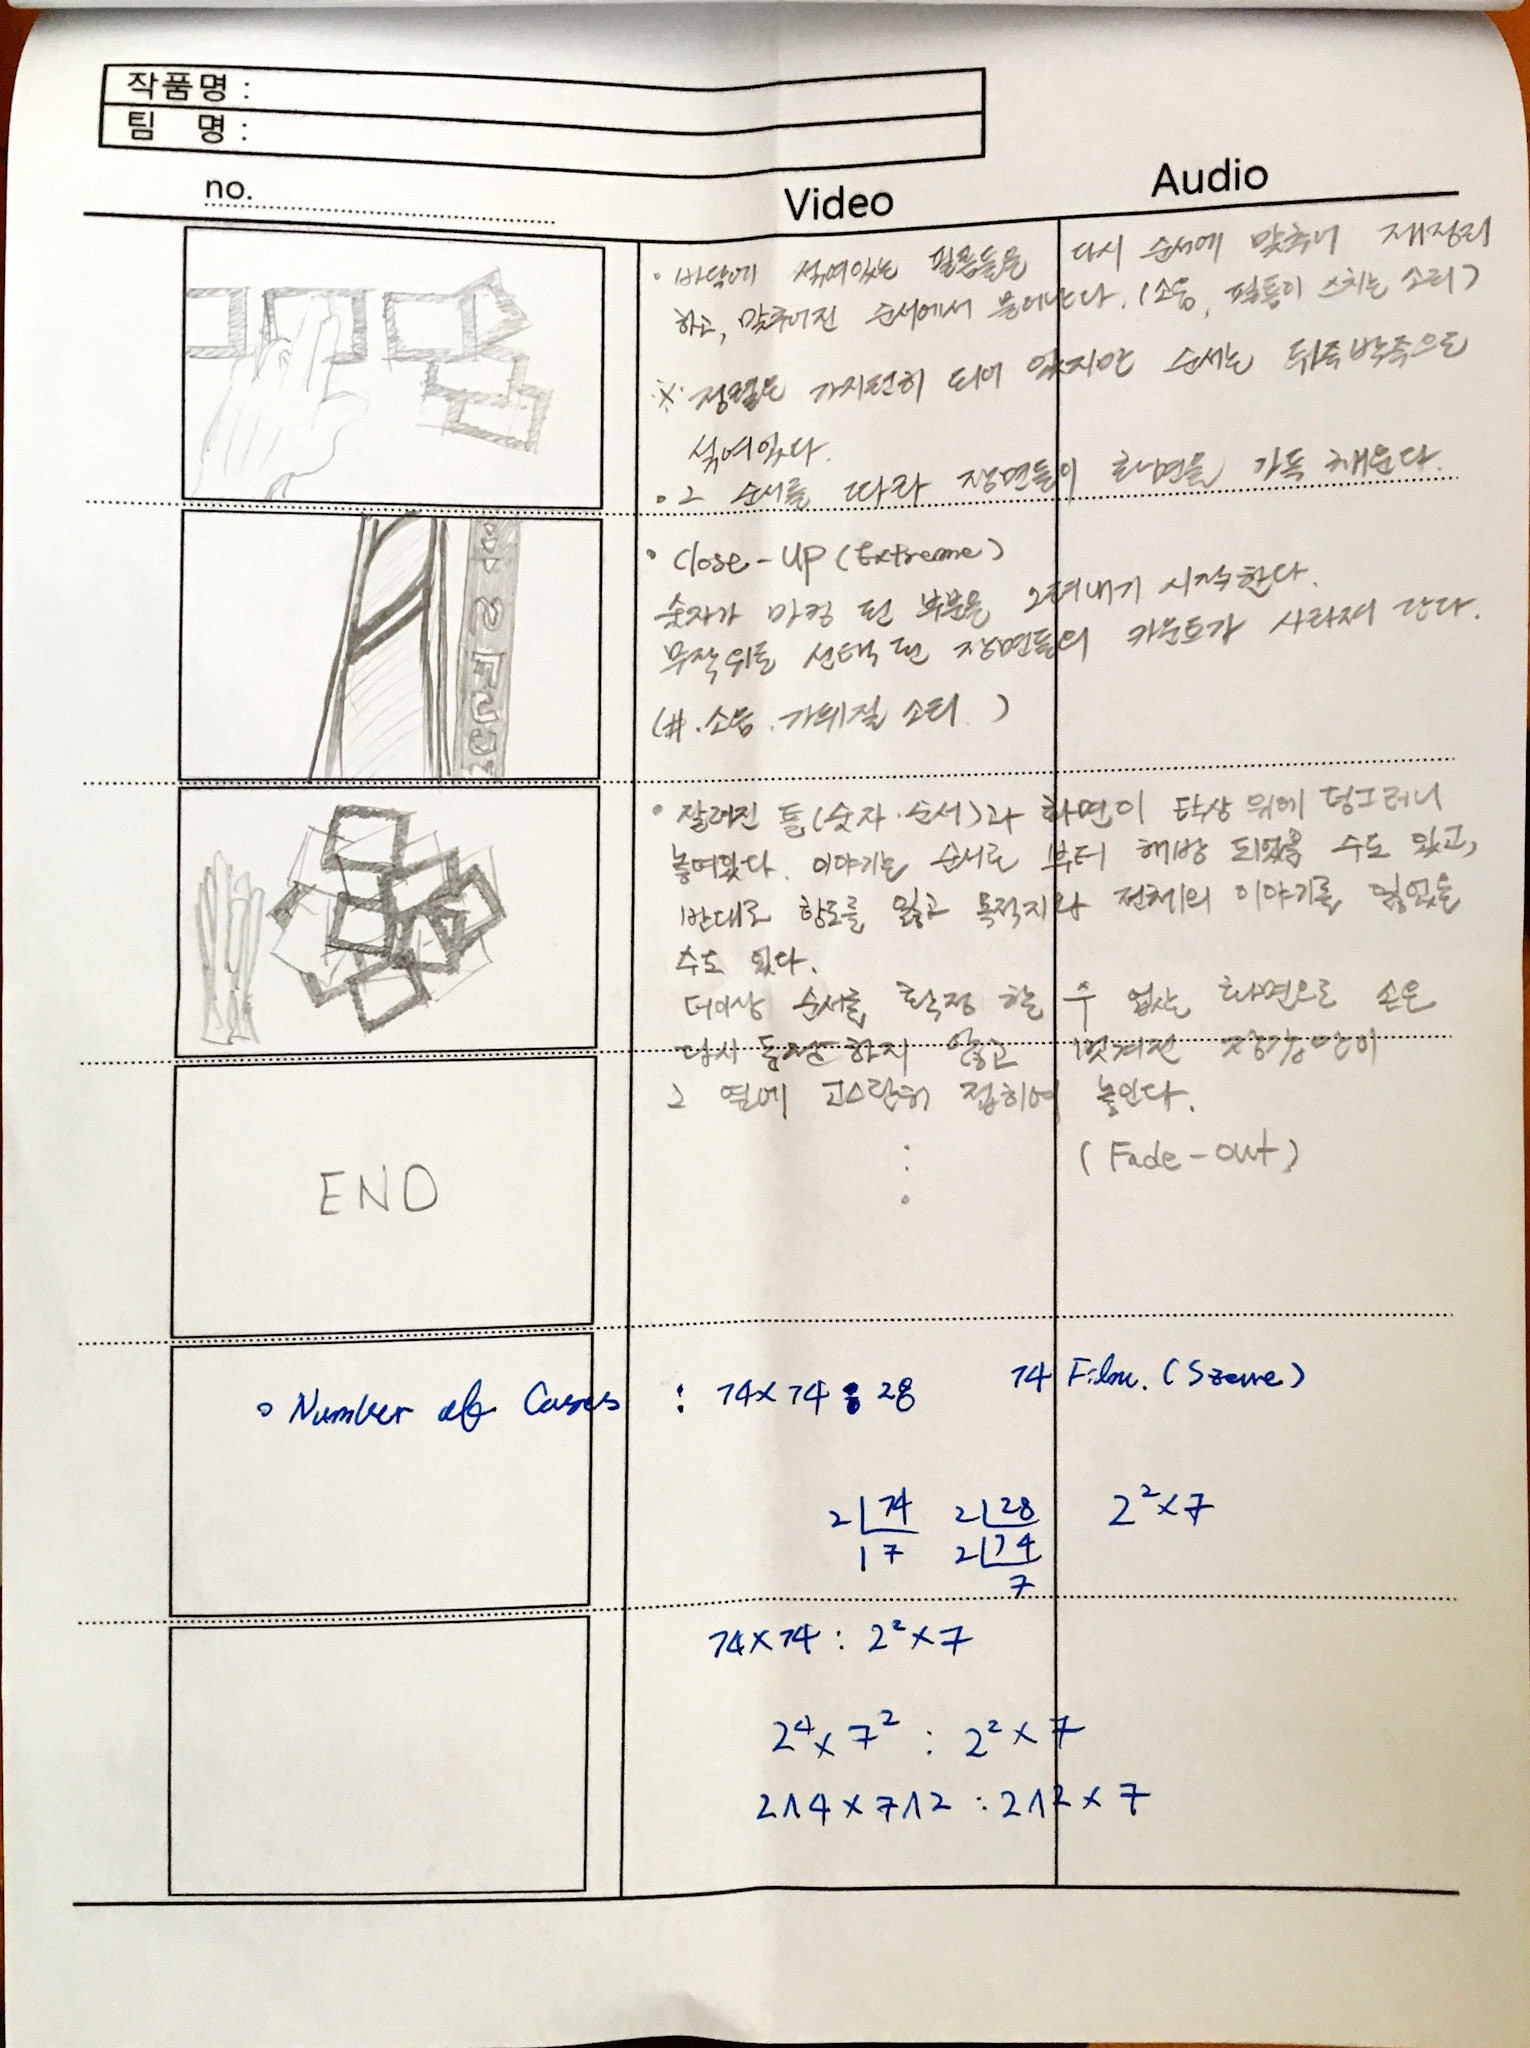 작품명 :
팀 명 :
no.
Video
Audio
• 바닥에 섞여있는 필름들을 다시 순서에 맞추어 재정리
하고, 맞추어진 순서에서 물러난다. (소등, 필름이 스치는 소리)
※ 정렬은 가지런히 되어 있지만 순서는 뒤죽박죽으로
섞여있다.
• 그 순서를 따라 장면들이 화면을 가득 채운다.
• Close-up (Extreme)
숫자가 마킹 된 부분을 오려내기 시작한다.
무작위로 선택 된 장면들의 카운트가 사라져 간다.
(#. 소등. 가위질 소리 )
• 잘려진 틀(숫자·순서)과 화면이 탁상 위에 덩그러니
놓여있다. 이야기는 순서로 부터 해방 되었을 수도 있고,
반대로 항로를 잃고 목적지와 전체의 이야기를 잃었을
수도 있다.
더이상 순서를 확정 할 수 없는 화면으로 손은
다시 등장하지 않고 벗겨진 장갑만이
그 옆에 고스란히 접히어 놓인다.
(Fade-out)
END
○ Number of Cases : 74×74 : 28
74 Film. (Szene)
2 74 2 28 2²×7
17 2 14
7
74×74 : 2²×7
2⁴×7² : 2²×7
2∧4×7∧2 : 2∧2×7